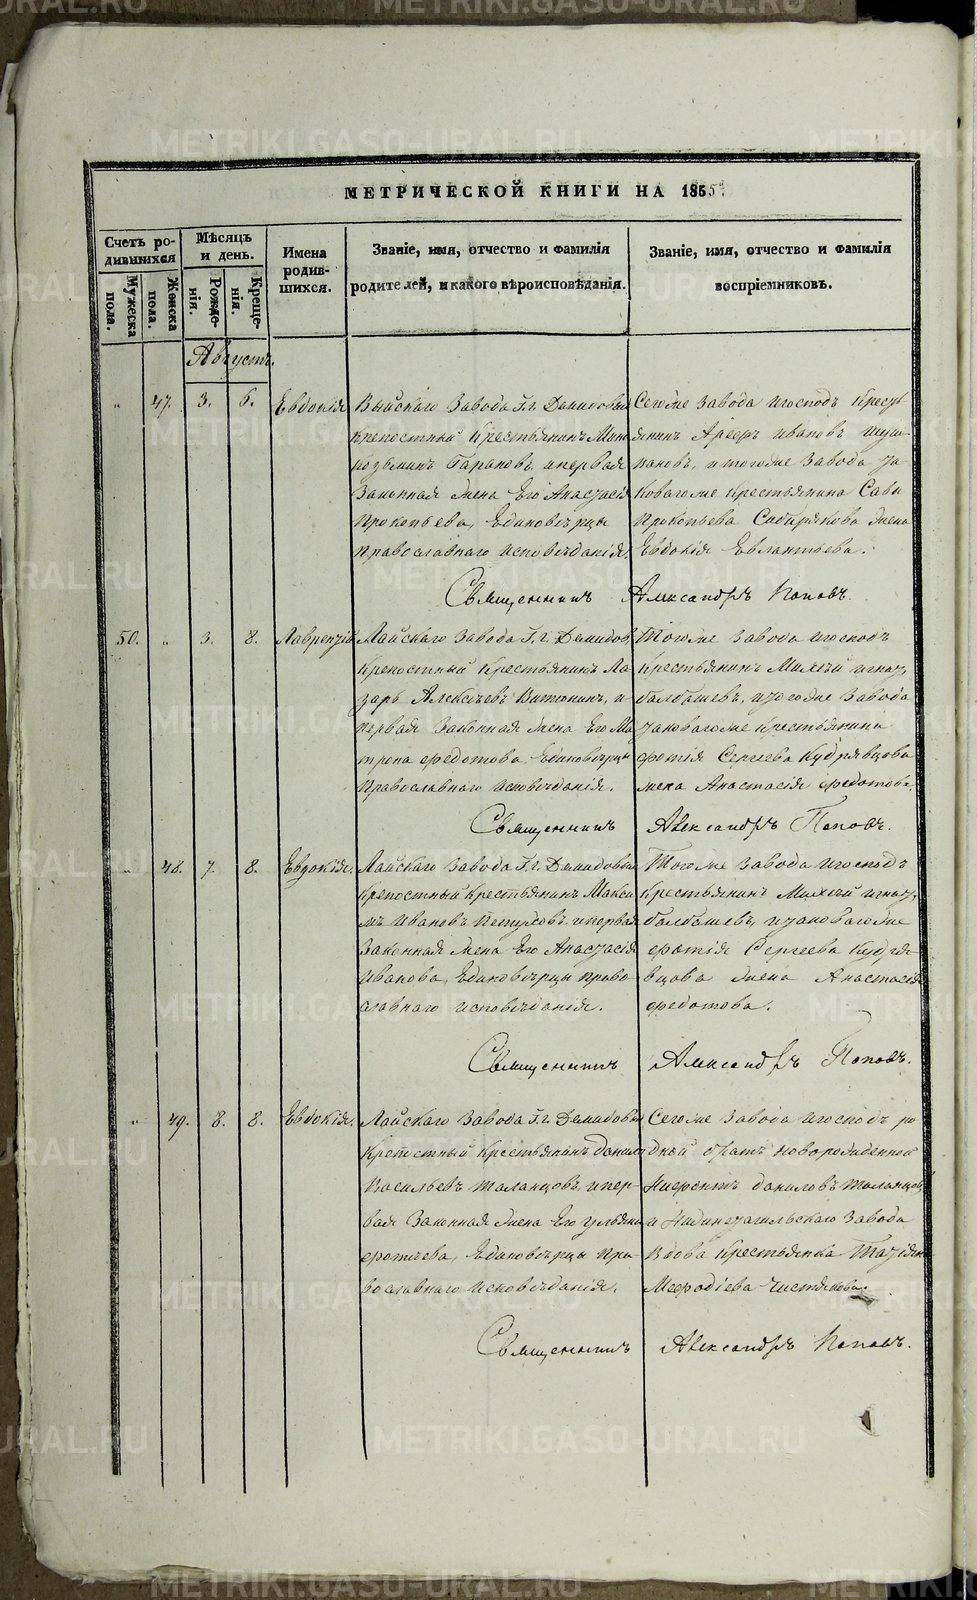 МЕТРИЧЕСКОЙ КНИГИ НА 1855.
Счетъ ро-
дившихся
Мѣсяцъ
и день.
Имена
родив-
шихся.
Званіе, имя, отчество и фамилія
родителей, и какого вѣроисповѣданія.
Званіе, имя, отчество и фамилія
воспріемниковъ.
Мужеска
пола.
Женска
пола.
Рожде-
нія.
Креще-
нія.
Августъ.
" 47. 3. 6. Евдокія
Выйскаго Завода Г.г. Демидовых
крепостный Крестьянинъ
Козьминъ Барановъ, и первая
Законная Жена Его Анастасія
Прокопьева, Единовѣрцы
Православнаго Исповѣданія.
Сегоже Завода Господъ Кресть
янинъ Ивановъ
пановъ, и тогоже Завода та
коваго же Крестьянина Сави
Прокопьева Сибирякова Жена
Евдокія Евлантьева.
Священникъ Александръ Поповъ.
50. " 3. 8. Лаврентій
Лайскаго Завода Г.г. Демидов.
Крепостный Крестьянинъ Ла
зарь Алексѣевъ Витюнинъ, и
первая Законная Жена Его Ма
трона Федотова Единовѣрцы
Православнаго Исповѣданія.
Тогоже Завода Господъ
Крестьянинъ Михѣй Игнат.
Балбашевъ, и тогоже Завода
таковагоже Крестьянина
Фотія Сергѣева Кудрявцова
жена Анастасія Федотова.
Священникъ Александръ Поповъ.
" 48. 7. 8. Евдокія.
Лайскаго Завода Г.г. Демидовых
Крепостный Крестьянинъ Макси
мъ Ивановъ Петуховъ, и первая
Законная Жена Его Анастасія
Иванова, Единовѣрцы Право
славнаго Исповѣданія.
Тогоже Завода Господъ
Крестьянинъ Михѣй Игнат.
Балбашевъ, и таковагоже
Фотія Сергѣева Кудря
вцова Жена Анастасія
Федотова.
Священникъ Александръ Поповъ.
" 49. 8. 8. Евдокія.
Лайскаго Завода Г.г. Демидовых
Крепостный Крестьянинъ Данило
Васильевъ Таланцовъ, и пер-
вая Законная Жена Его Ульяна
Фотіева, Единовѣрцы Пра
вославнаго Исповѣданія.
Сегоже Завода Господъ ро
дной братъ новорожденной
Даниловъ Таланцов,
и Нижнетагильскаго Завода
Вдова Крестьянка Татіана
Мефодіева Чистякова.
Священникъ Александръ Поповъ.
METRIKI.GASO-URAL.RU